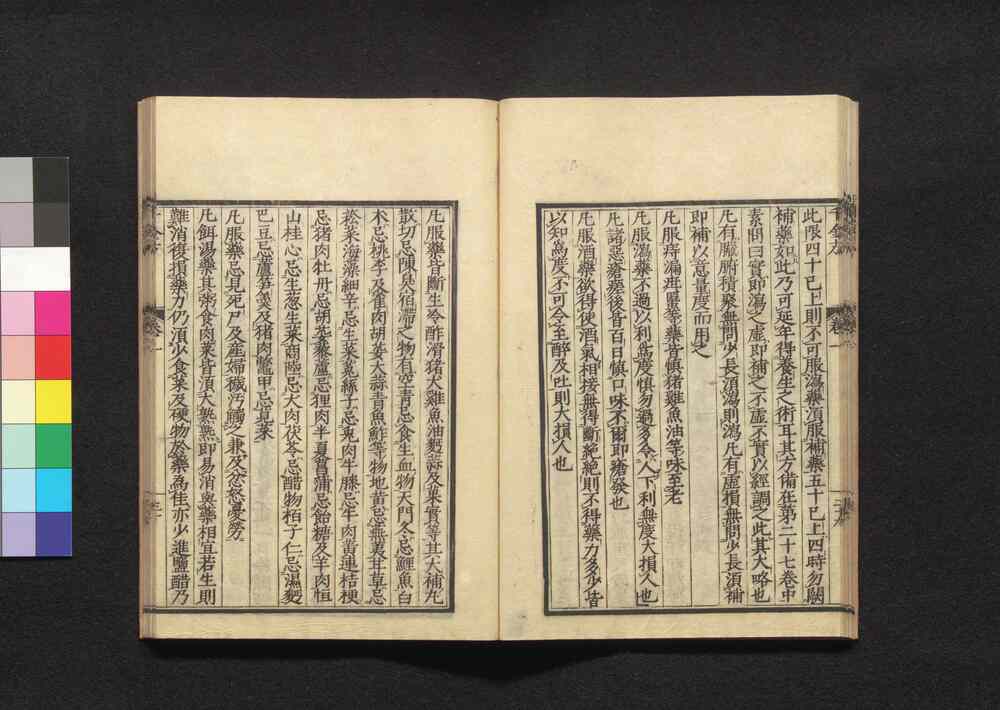 此限四十已上則不可服瀉藥湏服補藥五十已上四時勿闕
補藥如此乃可延年得養生之術耳其方備在第二十七卷中
素問曰實即瀉之虛即補之不虛不實以經調之此其大略也
凡有臓腑積聚無問少長湏瀉則瀉凡有虛損無問少長湏補
即補以意量度而用之
凡服痔漏疳𧏾等藥皆慎猪雞魚油等味至老
凡服瀉藥不過以利爲度慎勿過多令人下利無度大損人也
凡諸惡瘡瘥後皆百日慎口味不爾即瘡發也
凡服酒藥欲得使酒氣相接無得斷絶絶則不得藥力多少皆
以知爲度不可令至醉及吐則大損人也
凡服藥皆斷生冷酢滑猪犬雞魚油麪蒜及菓實等其大補丸
散切忌陳臭宿滯之物有空青忌食生血物天門冬忌鯉魚白
术忌桃李及雀肉胡荽大蒜青魚鮓等物地黃忌蕪荑甘草忌
菘菜海藻細辛忌生菜菟絲子忌兎肉牛膝忌牛肉黃連桔梗
忌猪肉牡丹忌胡荽藜蘆忌狸肉半夏菖蒲忌飴糖及羊肉恒
山桂心忌生葱生菜商陸忌犬肉茯苓忌醋物栢子仁忌濕麪
巴豆忌蘆笋羹及猪肉鼈甲忌莧菜
凡服藥忌見死尸及産婦穢汚觸之兼及忿怒憂勞
凡餌湯藥其粥食肉菜皆湏大熟熟即易消與藥相宜若生則
難消復損藥力仍湏少食菜及硬物於藥爲佳亦少進鹽醋乃